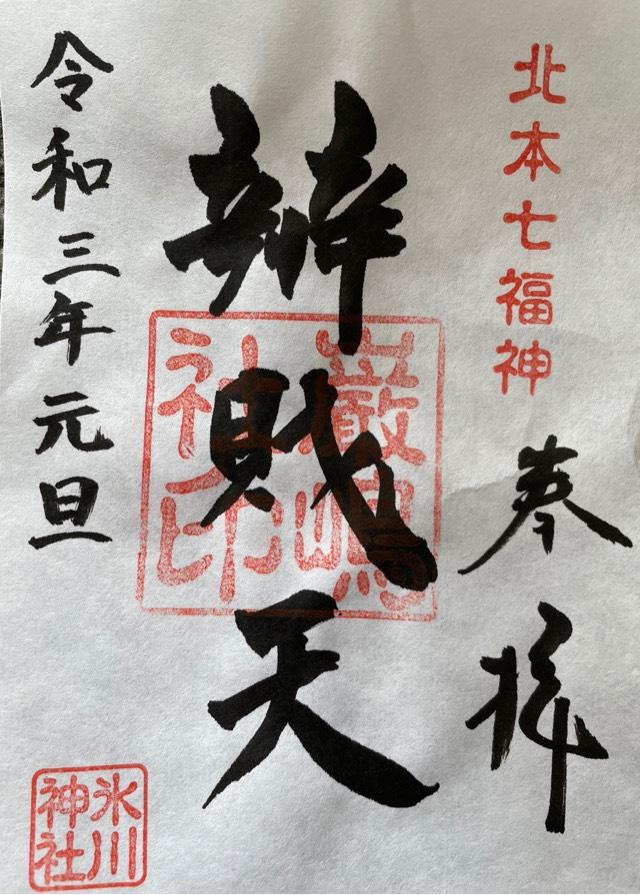 北本七福神
奉拝
辨財天
巌嶋
社印
令和三年元旦
氷川
神社